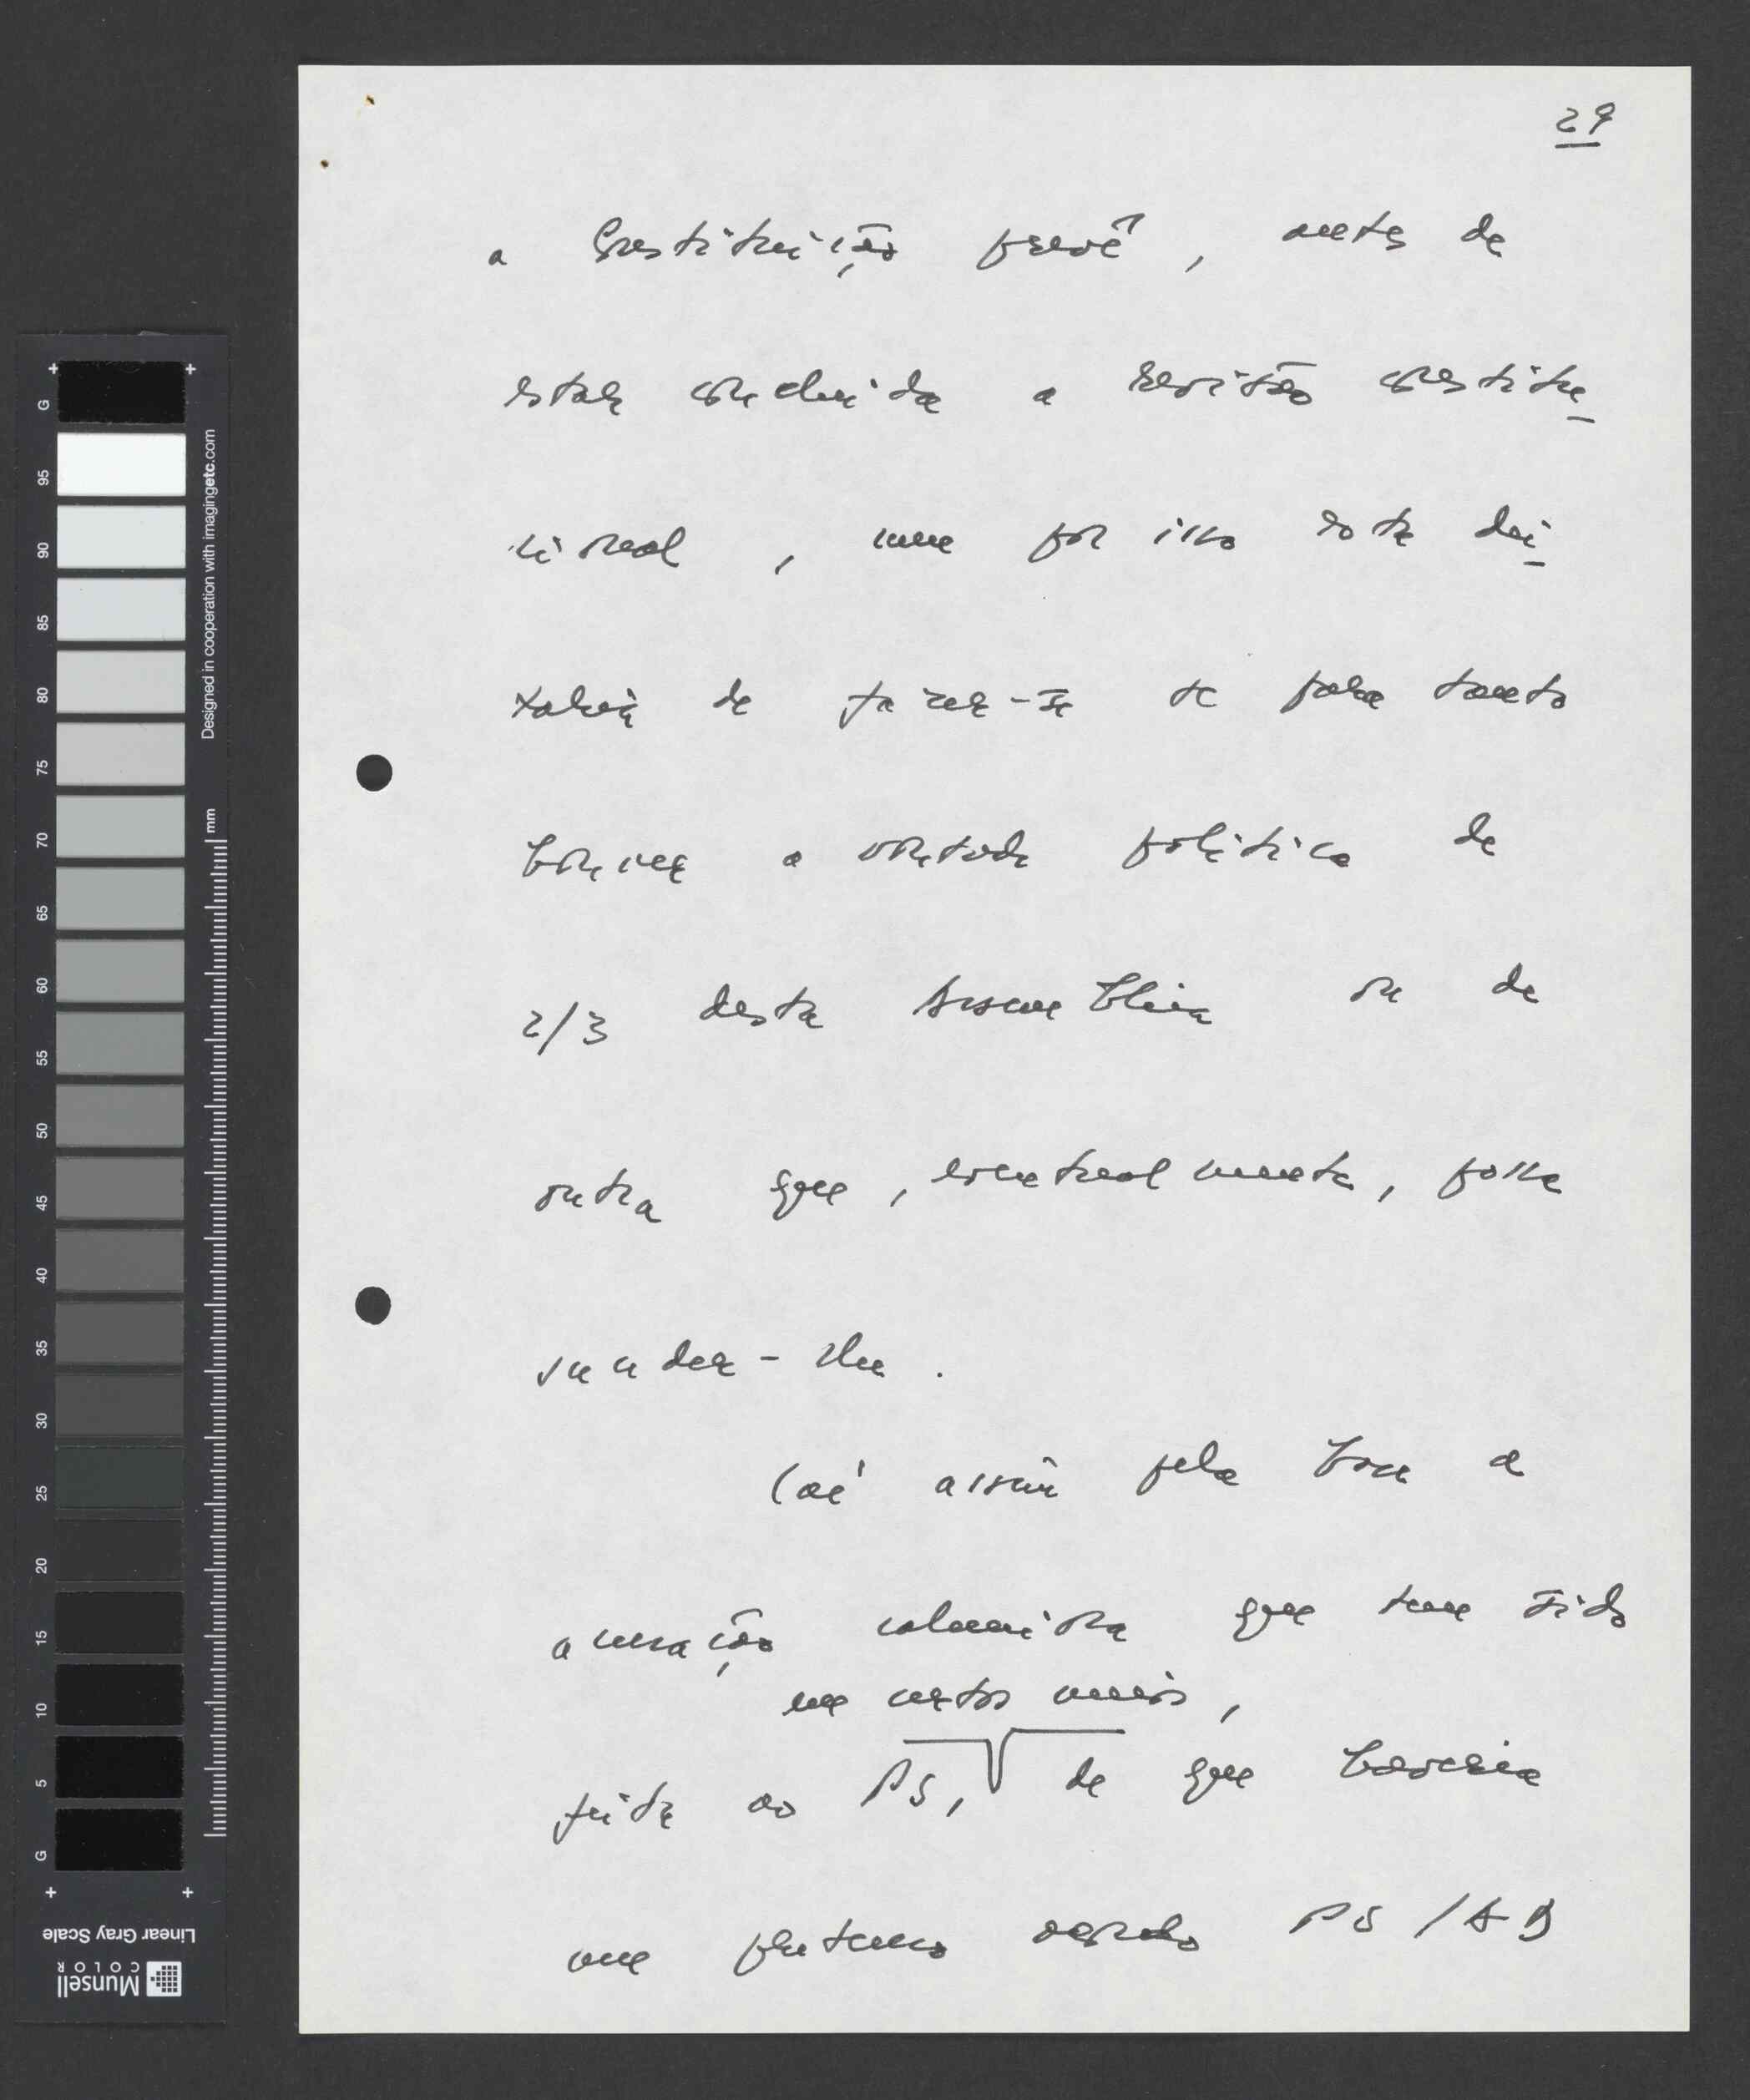 29
a Constituição prevê, antes de
estar concluída a revisão constitu-
cional, nem por isso esta dei-
xaria de fazer-se se para tanto
houver a vontade política de
2/3 desta Assembleia ou de
outra que, eventualmente, possa
suceder-lhe.
Cai assim pela base a
acusação caluniosa que tem sido
em certos meios,
feita ao PS, de que haveria
um pretenso acordo PS/AD
G
95
90
85
80
75
70
65
60
55
50
45
40
35
30
25
20
15
10
5
G
Designed in cooperation with imagingetc.com
mm
Linear Gray Scale
Munsell
COLOR